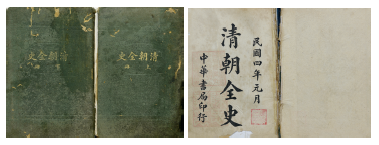 清朝全史
清朝全史
上
民國四年元月
清朝全史
中華書局印行